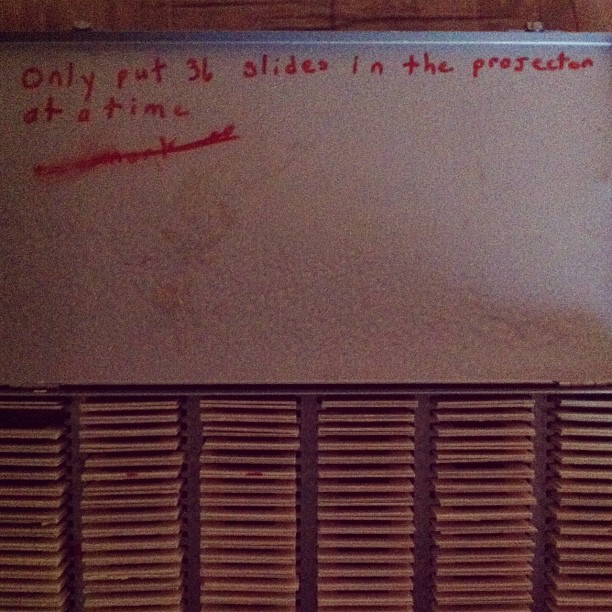 Only put 36 slides in the projector
at a time